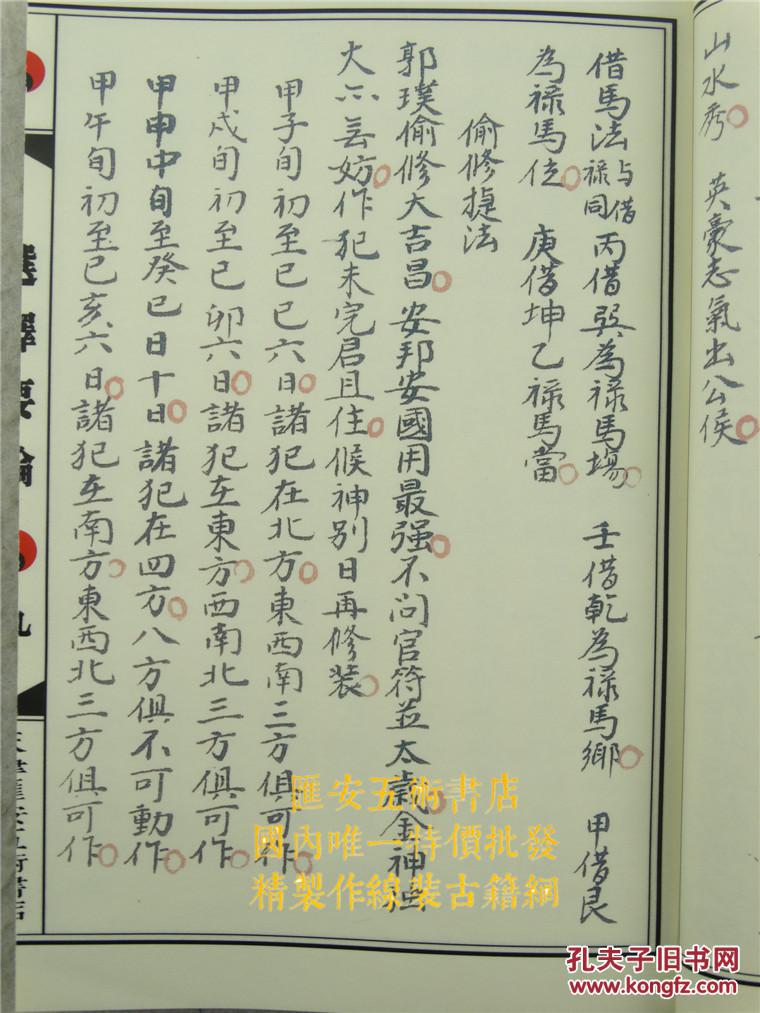 山水秀 英豪志氣出公侯
借馬法與借祿同 丙借巽為祿馬場 壬借乾為祿馬鄉 甲借艮
為祿馬位 庚借坤乙祿馬當
偷修捷法
郭璞偷修大吉昌 安邦安國用最强 不问官符並太歲 金神
火亦無妨 作犯未完君且住 候神别日再修装
甲子旬初至己巳六日 諸犯在北方 東西南三方俱可作
甲戌旬初至己卯六日 諸犯在東方 西南北三方俱可作
甲申中旬至癸巳日十日 諸犯在四方 八方俱不可動作
甲午旬初至己亥六日 諸犯在南方 東西北三方俱可作
匯安五術書店
國內唯一特價批發
精製作線裝古籍網
孔夫子旧书网
www.kongfz.com